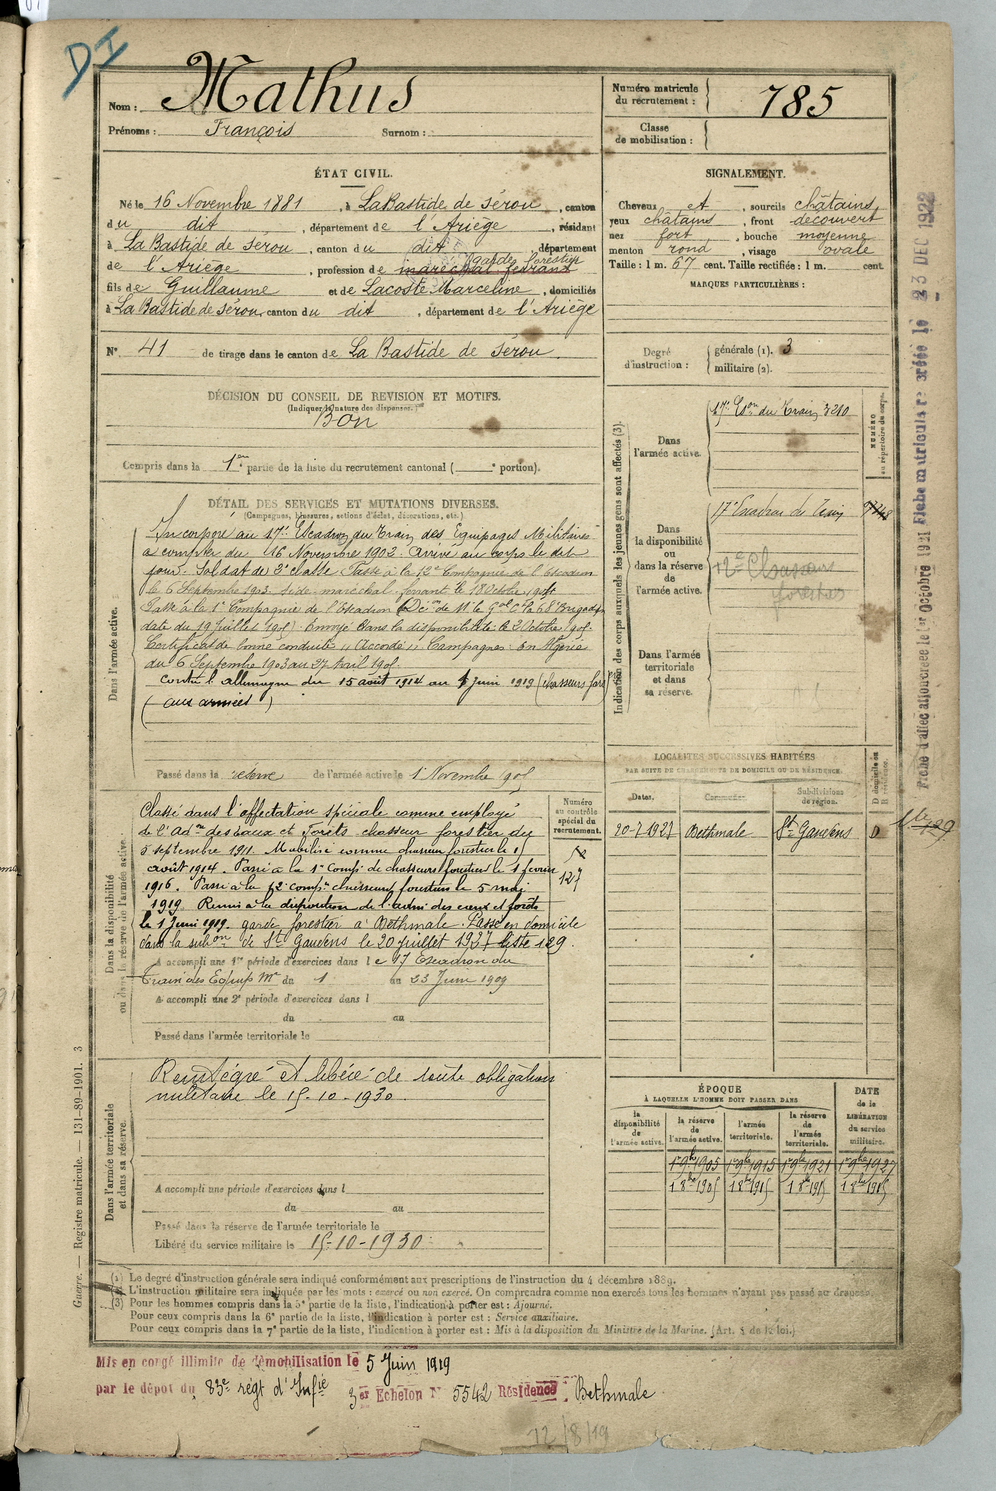 DI
Nom : Mathus
Prénoms : François Surnom :
Numéro matricule
du recrutement : 785
Classe
de mobilisation :
ÉTAT CIVIL.
Né le 16 Novembre 1881, à La Bastide de Sérou, canton
du dit, département de l'Ariège, résidant
à La Bastide de Sérou, canton du dit, département
garde forestier
de l'Ariège, profession de maréchal ferrant
fils de Guillaume et de Lacoste Marceline, domiciliés
à La Bastide de Sérou, canton du dit, département de l'Ariège
N° 41 de tirage dans le canton de La Bastide de Sérou
SIGNALEMENT.
Cheveux et, sourcils châtains
yeux châtains, front découvert
nez fort, bouche moyenne
menton rond, visage ovale
Taille : 1 m. 67 cent. Taille rectifiée : 1 m. cent.
MARQUES PARTICULIÈRES :
Degré
d'instruction :
générale (1). 3
militaire (2).
DÉCISION DU CONSEIL DE REVISION ET MOTIFS.
(Indiquer la nature des dispenses.)
Bon
Compris dans la 1re partie de la liste du recrutement cantonal ( e portion).
DÉTAIL DES SERVICES ET MUTATIONS DIVERSES.
(Campagnes, blessures, actions d'éclat, décorations, etc.)
Dans l'armée active.
Incorporé au 17e Escadron du Train des Équipages Militaires
à compter du 16 Novembre 1902. Arrivé au corps le dit
jour. Soldat de 2e classe. Passé à la 12e Compagnie de l'Escadron
le 6 Septembre 1903. Aide-maréchal ferrant le 18 Octobre 1904
Passé à la 1e Compagnie de l'Escadron
date du 19 Juillet 1905). Envoyé dans la disponibilité le
Certificat de bonne conduite "Accordé" Campagnes : En Algérie
du 6 Septembre 1903 au 27 Avril 1905.
contre l'allemagne du 15 août 1914 au 4 juin 1919 (chasseurs fors)
(aux armées)
Passé dans la réserve de l'armée active le 1 Novembre 905
Indication des corps auxquels les jeunes gens sont affectés (3).
Dans
l'armée active.
17e Eson du Train 3210
NUMÉRO
au répertoire du corps.
Dans
la disponibilité
ou
dans la réserve
de
l'armée active.
17e Escadron de Train
12e Cie Chasseurs
forestiers
Dans l'armée
territoriale
et dans
sa réserve.
Dans la disponibilité
ou dans la réserve de l'armée active.
Classé dans l'affectation spéciale comme employé
de l'Adon des eaux et forêts chasseur forestier du
5 septembre 1911. Mobilisé comme chasseur forestier le 15
août 1914. Passé à la 1e Compie de chasseurs forestiers le 1 février
1916. Passé à la 12e compie chasseurs forestiers le 5 mai
1919 Remis à la disposition de l'admi des eaux et forêts
le 1 Juin 1919. garde forestier à Bethmale. Passé en domicile
dans la subon de St Gaudens le 20 juillet 1927 liste 129
Numéro
au contrôle
spécial du
recrutement.
127
A accompli une 1re période d'exercices dans le 17 Escadron du
Train des Equip Mres du 1 au 23 Juin 1909
A accompli une 2e période d'exercices dans l
du au
Passé dans l'armée territoriale le
LOCALITÉS SUCCESSIVES HABITÉES
PAR SUITE DE CHANGEMENTS DE DOMICILE OU DE RÉSIDENCE.
Dates. Communes. Subdivisions
de région.
D domicile ou
R résidence.
20-7-1927 Bethmale St Gaudens D
Dans l'armée territoriale
et dans sa réserve.
Réintégré et libéré de toute obligation
militaire le 15-10-1930
A accompli une période d'exercices dans l
du au
Passé dans la réserve de l'armée territoriale le
Libéré du service militaire le 15-10-1930
ÉPOQUE
À LAQUELLE L'HOMME DOIT PASSER DANS
DATE
de la
LIBÉRATION
du service
militaire.
la
disponibilité
de
l'armée active.
la réserve
de
l'armée active.
l'armée
territoriale.
la réserve
de
l'armée
territoriale.
1r 9bre 1905 1r 9bre 1915 1r 9bre 1921 1r 9bre 1927
(1) Le degré d'instruction générale sera indiqué conformément aux prescriptions de l'instruction du 4 décembre 1889.
(2) L'instruction militaire sera indiquée par les mots : exercé ou non exercé. On comprendra comme non exercés tous les hommes n'ayant pas passé au drapeau.
(3) Pour les hommes compris dans la 5e partie de la liste, l'indication à porter est : Ajourné.
Pour ceux compris dans la 6e partie de la liste, l'indication à porter est : Service auxiliaire.
Pour ceux compris dans la 7e partie de la liste, l'indication à porter est : Mis à la disposition du Ministre de la Marine. (Art. 4 de la loi.)
Guerre. — Registre matricule. — 131-89-1901. 3
Mis en congé illimité de démobilisation le 5 Juin 1919
par le dépôt du 83e régt d'Infie 3er Echelon N° 5542 Résidence Bethmale
12/8/19